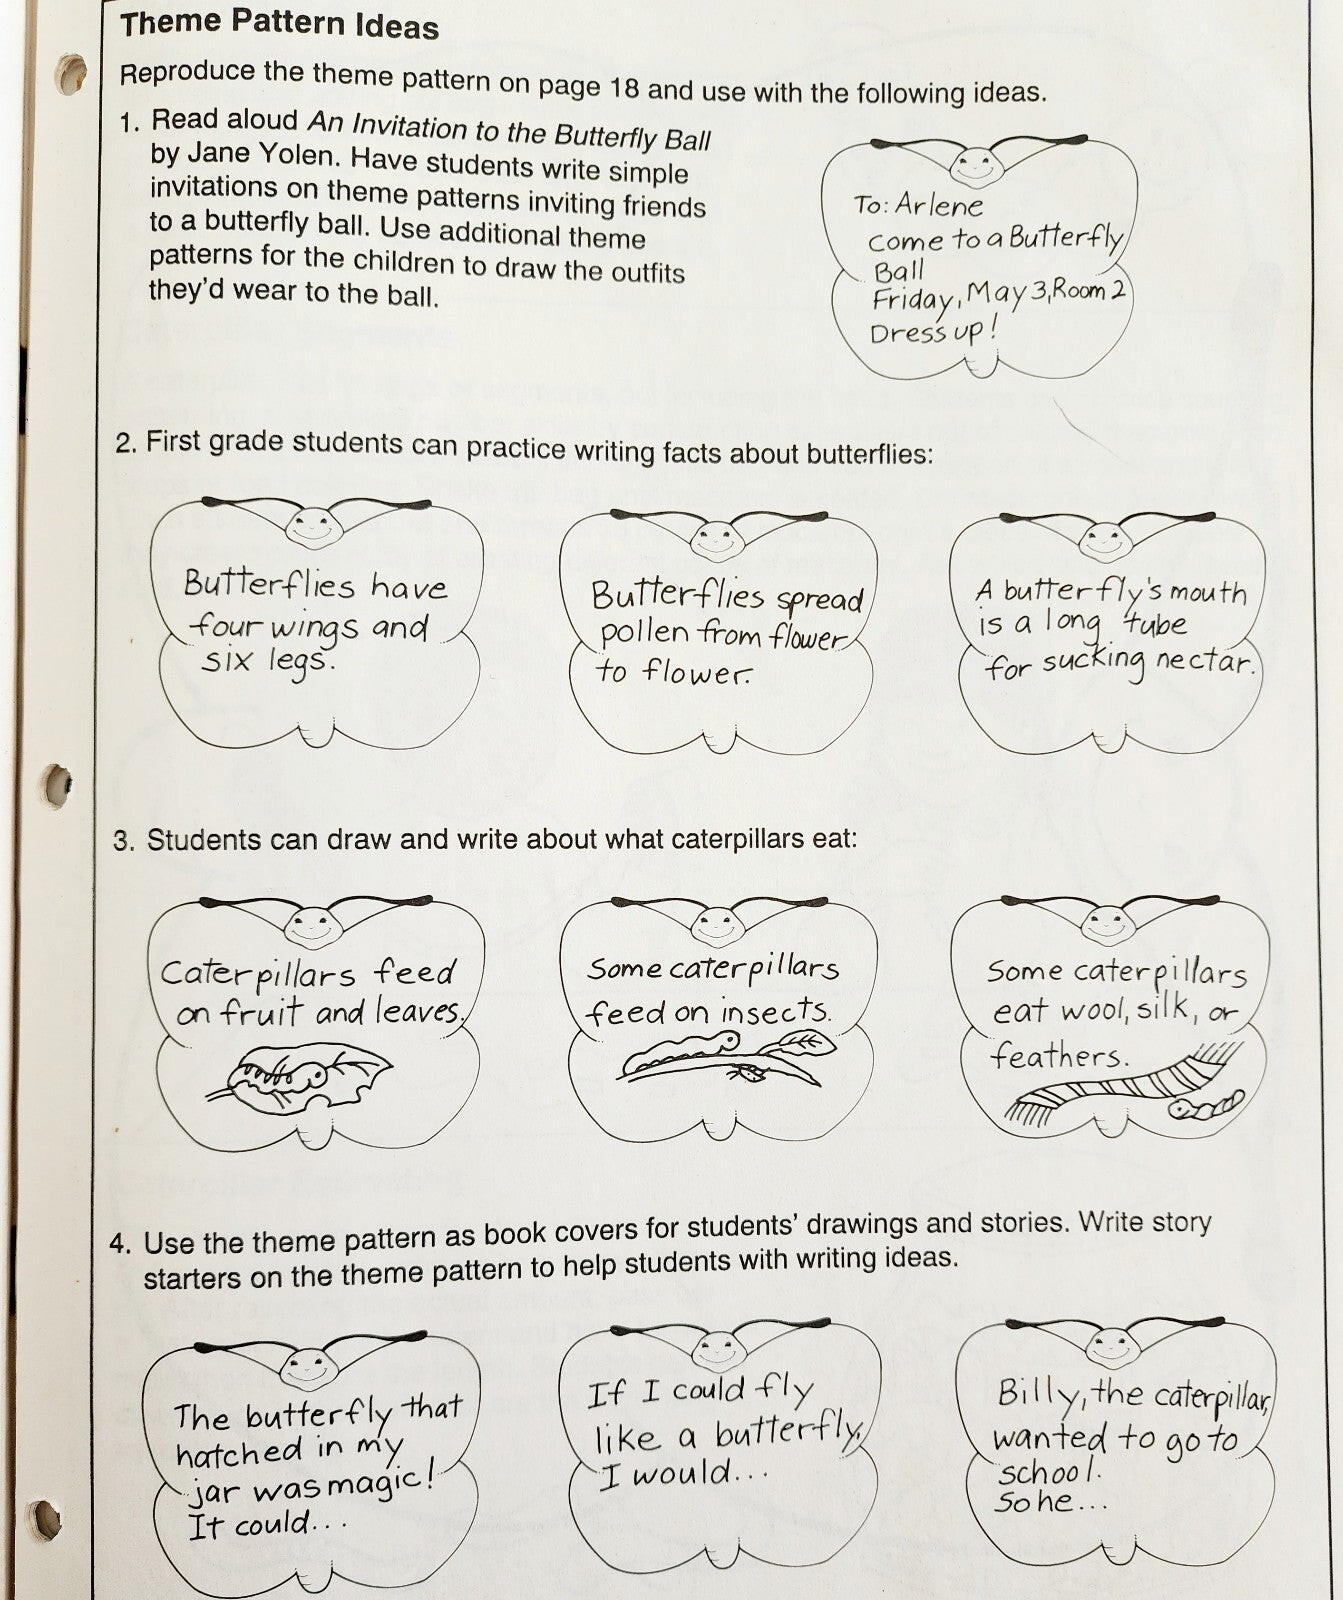 Theme Pattern Ideas
Reproduce the theme pattern on page 18 and use with the following ideas.
1. Read aloud An Invitation to the Butterfly Ball
by Jane Yolen. Have students write simple
invitations on theme patterns inviting friends
to a butterfly ball. Use additional theme
patterns for the children to draw the outfits
they'd wear to the ball.
To: Arlene
come to a Butterfly
Ball
Friday, May 3, Room 2
Dress up!
2. First grade students can practice writing facts about butterflies:
Butterflies have
four wings and
six legs.
Butterflies spread
pollen from flower
to flower.
A butterfly's mouth
is a long tube
for sucking nectar.
3. Students can draw and write about what caterpillars eat:
Caterpillars feed
on fruit and leaves.
Some caterpillars
feed on insects.
Some caterpillars
eat wool, silk, or
feathers.
4. Use the theme pattern as book covers for students' drawings and stories. Write story
starters on the theme pattern to help students with writing ideas.
The butterfly that
hatched in my
jar was magic!
It could...
If I could fly
like a butterfly,
I would...
Billy, the caterpillar,
wanted to go to
school.
So he...